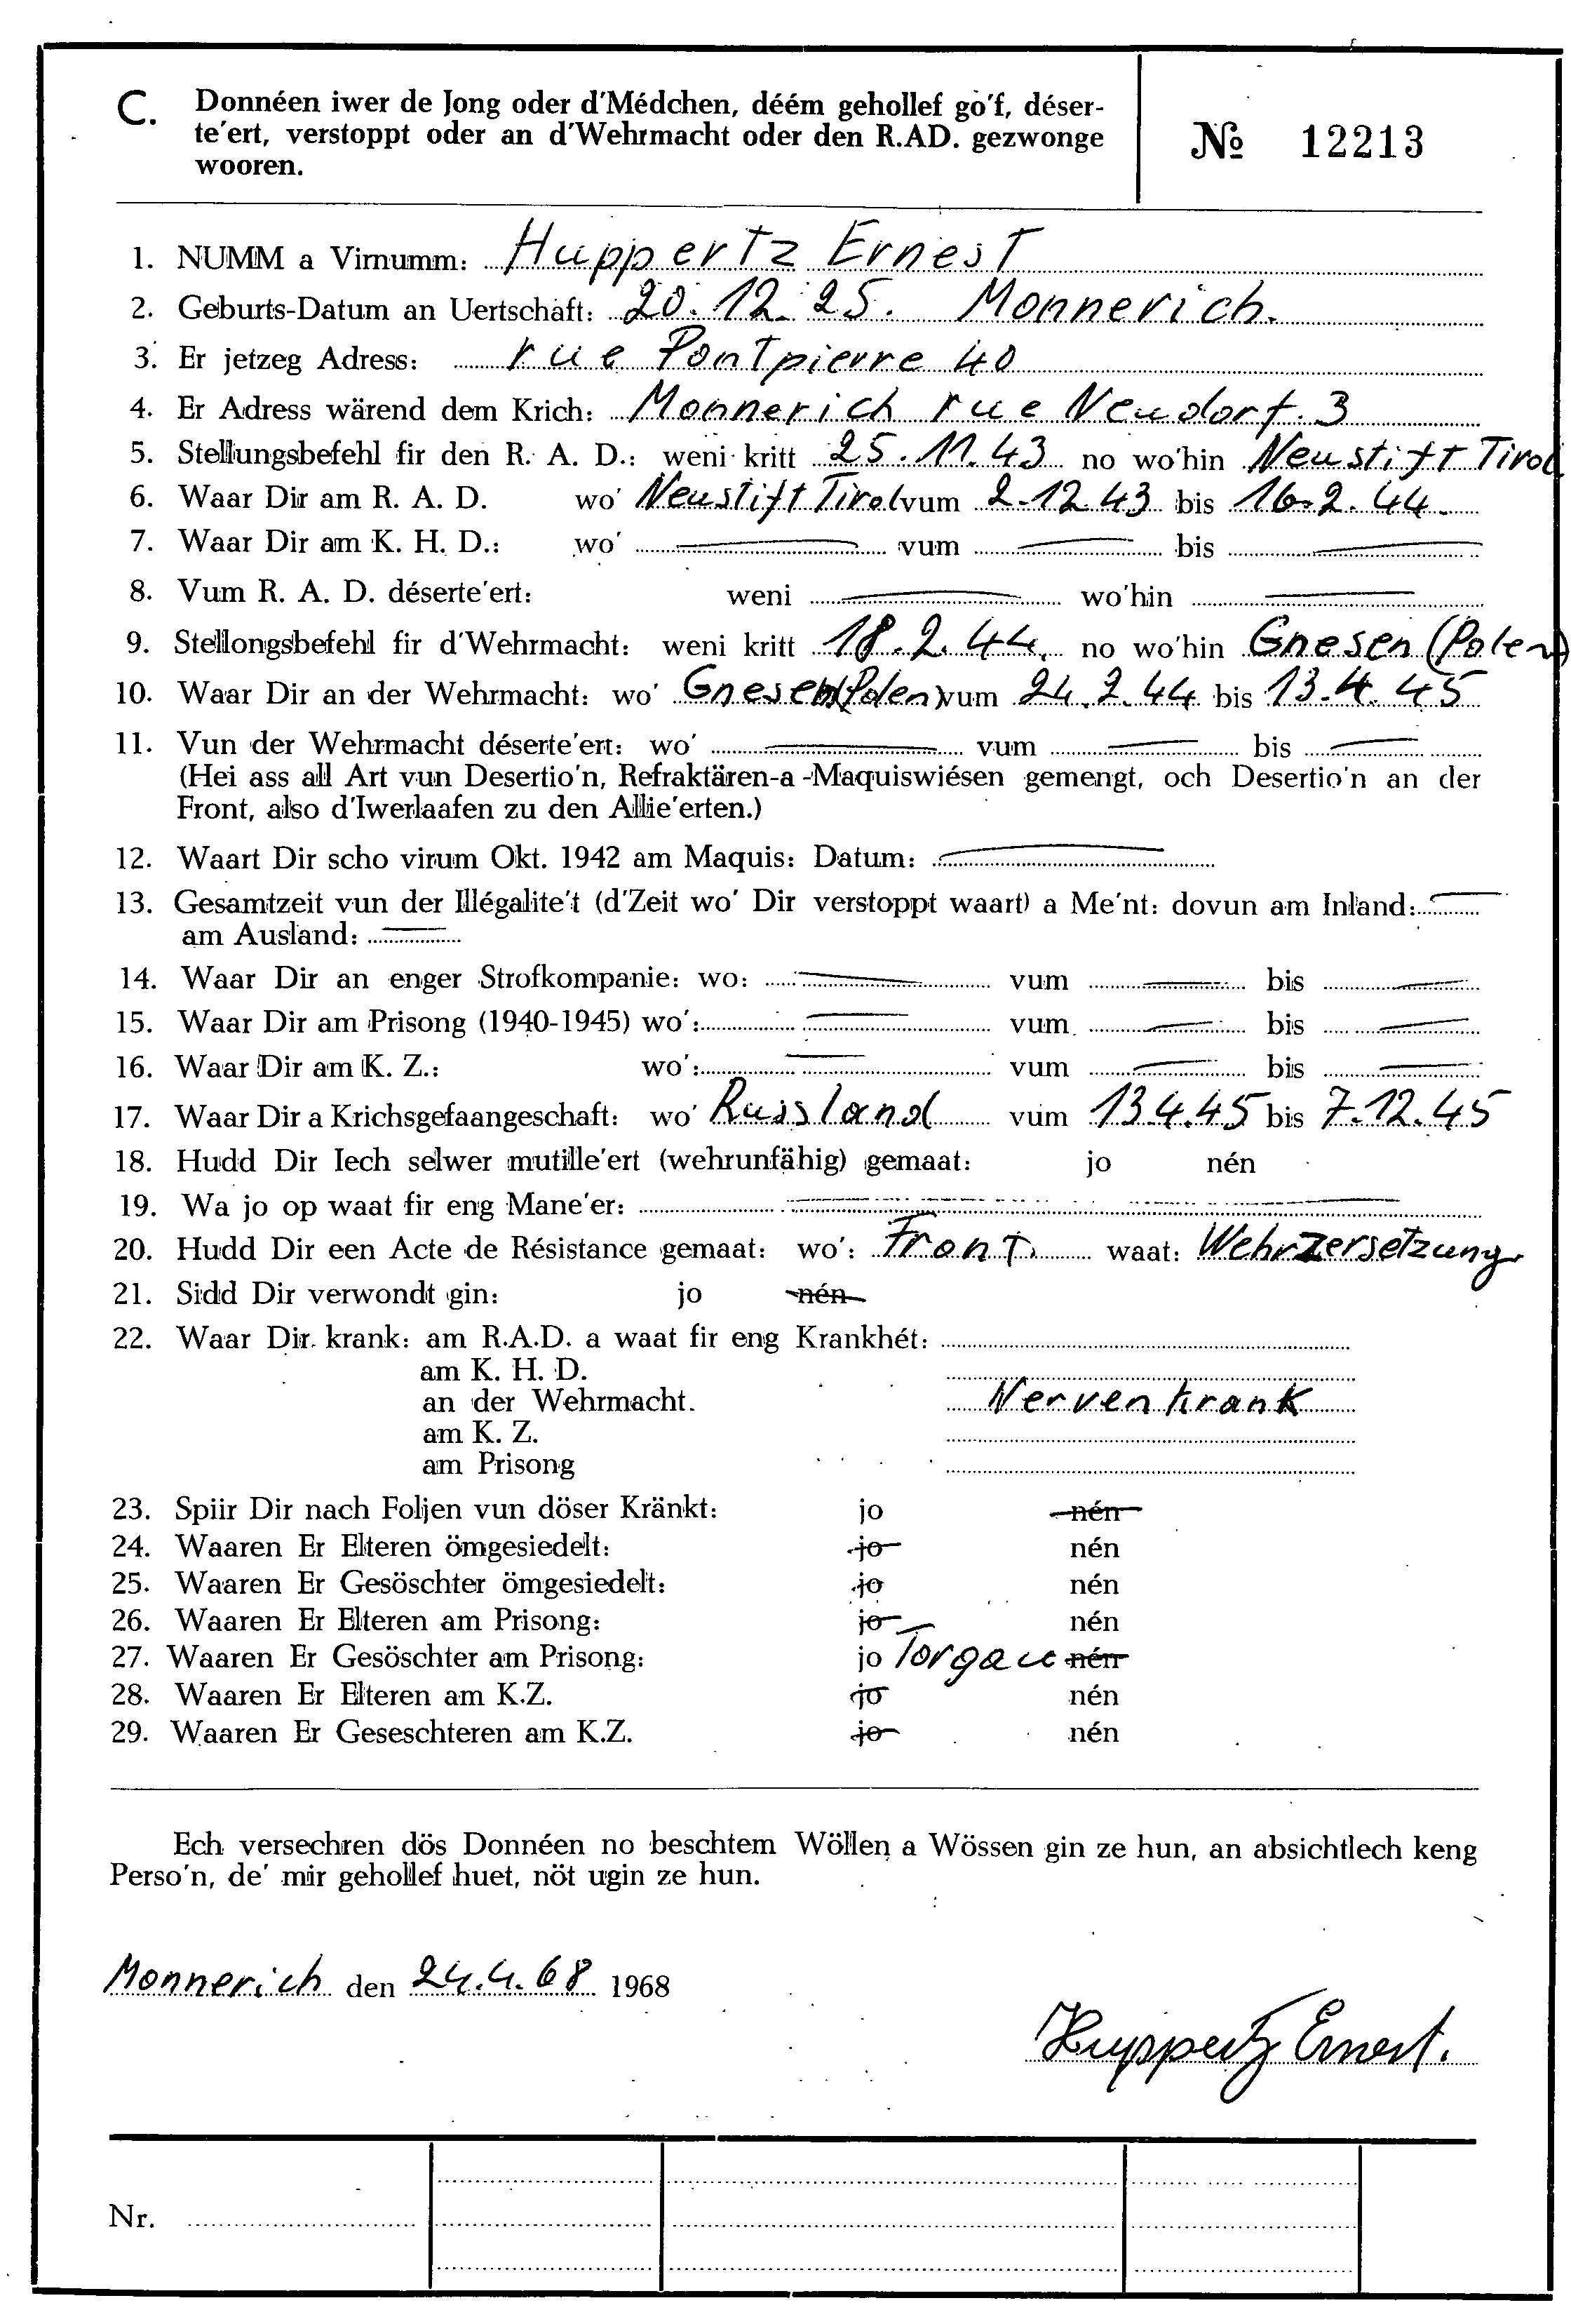 C. Donnéen iwer de Jong oder d'Médchen, déém gehollef go'f, déser-
te'ert, verstoppt oder an d'Wehrmacht oder den R.AD. gezwonge
wooren.
№ 12213
1. NUMM a Virnumm: Huppertz Ernest
2. Geburts-Datum an Uertschaft: 20.12.25. Monnerich.
3. Er jetzeg Adress: rue Pontpierre 40
4. Er Adress wärend dem Krich: Monnerich rue Neudorf. 3
5. Stellungsbefehl fir den R. A. D.: weni kritt 25.11.43 no wo'hin Neustift Tirol
6. Waar Dir am R. A. D. wo' Neustift Tirol vum 2.12.43 bis 16.2.44.
7. Waar Dir am K. H. D.: wo' — vum — bis —
8. Vum R. A. D. déserte'ert: weni — wo'hin —
9. Stellongsbefehl fir d'Wehrmacht: weni kritt 18.2.44. no wo'hin Gnesen (Polen)
10. Waar Dir an der Wehrmacht: wo' Gnesen (Polen) vum 24.2.44 bis 13.4.45
11. Vun der Wehrmacht déserte'ert: wo' — vum — bis —
(Hei ass all Art vun Desertio'n, Refraktären-a-Maquiswiésen gemengt, och Desertio'n an der
Front, also d'Iwerlaafen zu den Allie'erten.)
12. Waart Dir scho virum Okt. 1942 am Maquis: Datum: —
13. Gesamtzeit vun der Illégalite't (d'Zeit wo' Dir verstoppt waart) a Me'nt: dovun am Inland: —
am Ausland: —
14. Waar Dir an enger Strofkompanie: wo: — vum — bis —
15. Waar Dir am Prisong (1940-1945) wo': — vum — bis —
16. Waar Dir am K. Z.: wo': — vum — bis —
17. Waar Dir a Krichsgefaangeschaft: wo' Russland vum 13.4.45 bis 7.12.45
18. Hudd Dir Iech selwer mutille'ert (wehrunfähig) gemaat: jo nén
19. Wa jo op waat fir eng Mane'er: —
20. Hudd Dir een Acte de Résistance gemaat: wo': Front waat: Wehrzersetzung
21. Sidd Dir verwondt gin: jo nén
22. Waar Dir krank: am R.A.D. a waat fir eng Krankhét:
am K. H. D.
an der Wehrmacht. Nervenkrank
am K. Z.
am Prisong
23. Spiir Dir nach Foljen vun döser Kränkt: jo nén
24. Waaren Er Elteren ömgesiedelt: jo nén
25. Waaren Er Gesöschter ömgesiedelt: jo nén
26. Waaren Er Elteren am Prisong: jo nén
27. Waaren Er Gesöschter am Prisong: jo Torgau nén
28. Waaren Er Elteren am K.Z. jo nén
29. Waaren Er Geseschteren am K.Z. jo nén
Ech versechren dös Donnéen no beschtem Wöllen a Wössen gin ze hun, an absichtlech keng
Perso'n, de' mir gehollef huet, nöt ugin ze hun.
Monnerich den 24.4.68 1968
Huppertz Ernest.
Nr.